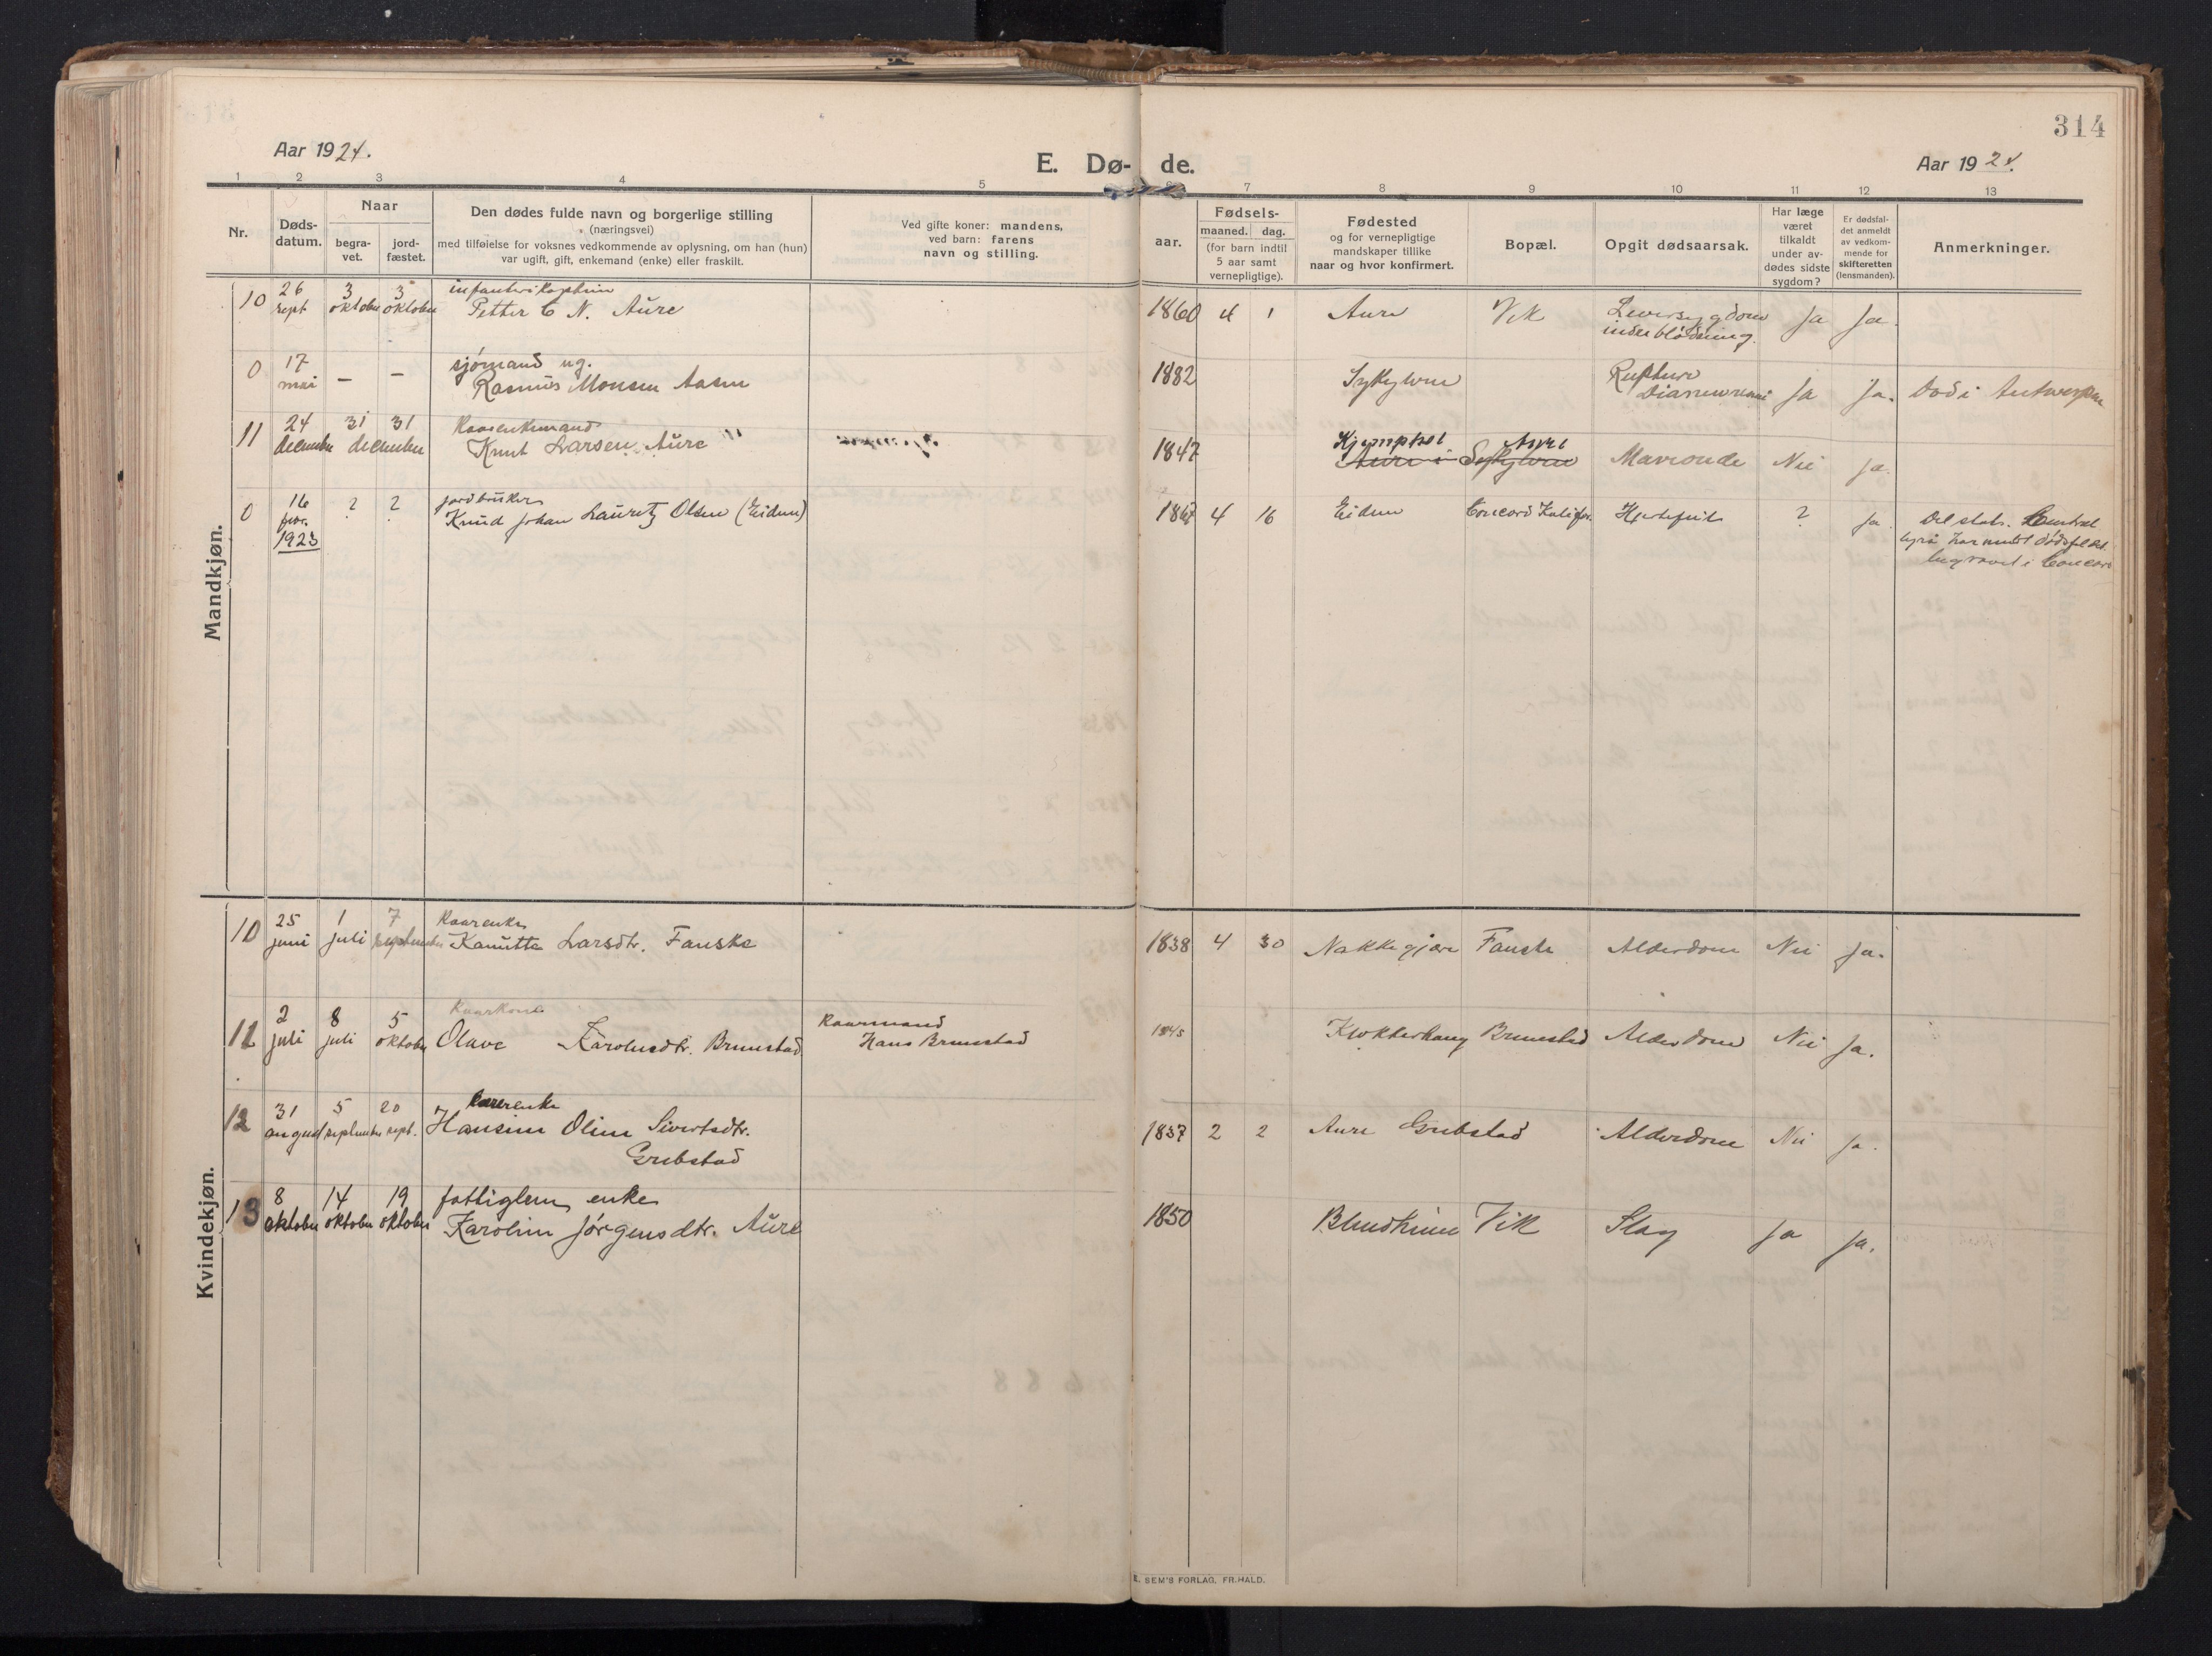 314
Aar 1924.
E. Dø- de.
Aar 1924.
1 2 3 4 5 6 7 8 9 10 11 12 13
Nr.
Døds-
datum.
Naar
begra-
vet.
jord-
fæstet.
Den dødes fulde navn og borgerlige stilling
(næringsvei)
med tilføielse for voksnes vedkommende av oplysning, om han (hun)
var ugift, gift, enkemand (enke) eller fraskilt.
Ved gifte koner: mandens,
ved barn: farens
navn og stilling.
Fødsels-
aar.
maaned. dag.
(for barn indtil
5 aar samt
vernepligtige).
Fødested
og for vernepligtige
mandskaper tillike
naar og hvor konfirmert.
Bopæl.
Opgit dødsaarsak.
Har læge
været
tilkaldt
under av-
dødes sidste
sygdom?
Er dødsfal-
det anmeldt
av vedkom-
mende for
skifteretten
(lensmanden).
Anmerkninger.
Mandkjøn.
26 3 3 infanterikaptein
10 sept oktober oktober Petter C N. Aure 1860 4 1 Aure Vik Leversygdom Ja Ja.
inder blødning.
17 sjømand ug.
0 mai — — Rasmus Monsen Aasen 1882 Sykylven Rupture Ja Ja. Død i Antwerpen
24 31 31 Kaarenkemand
11 december december Knut Larsen Aure 1847 Kjemphol Aure Nei Ja.
Aure i Sykylven
16 ? ? jordbruker
0 febr. Knud Johan Lauritz Olsen (Eidem) 1867 4 16 Eidem Concord Kalifor. Hjertefeil ? Ja. Det stat. Central
1923
byrå har meldt dødsfaldet.
begravet i Concord
Kvindekjøn.
25 1 7 Kaarenke
10 juni juli september Kanutte Larsdtr. Fauske 1838 4 30 Nakkegjære Fauske Alderdom Nei Ja.
2 8 5 Kaarkone Kaarmand
11 juli juli oktober Olave Karolusdtr. Brunstad Hans Brunstad 1845 Klokkerhaug Brunstad Alderdom Nei Ja.
31 5 20 Kaarenke
12 august september sept. Hansine Oline Sivertsdtr. 1837 2 2 Aure Grebstad Alderdom Nei Ja.
Grebstad
8 14 19 fattiglem, enke
13 oktober oktober oktober Karoline Jørgensdtr. Aure 1850 Blindheim Vik Slag Ja Ja.
E. SEM'S FORLAG, FR.HALD.